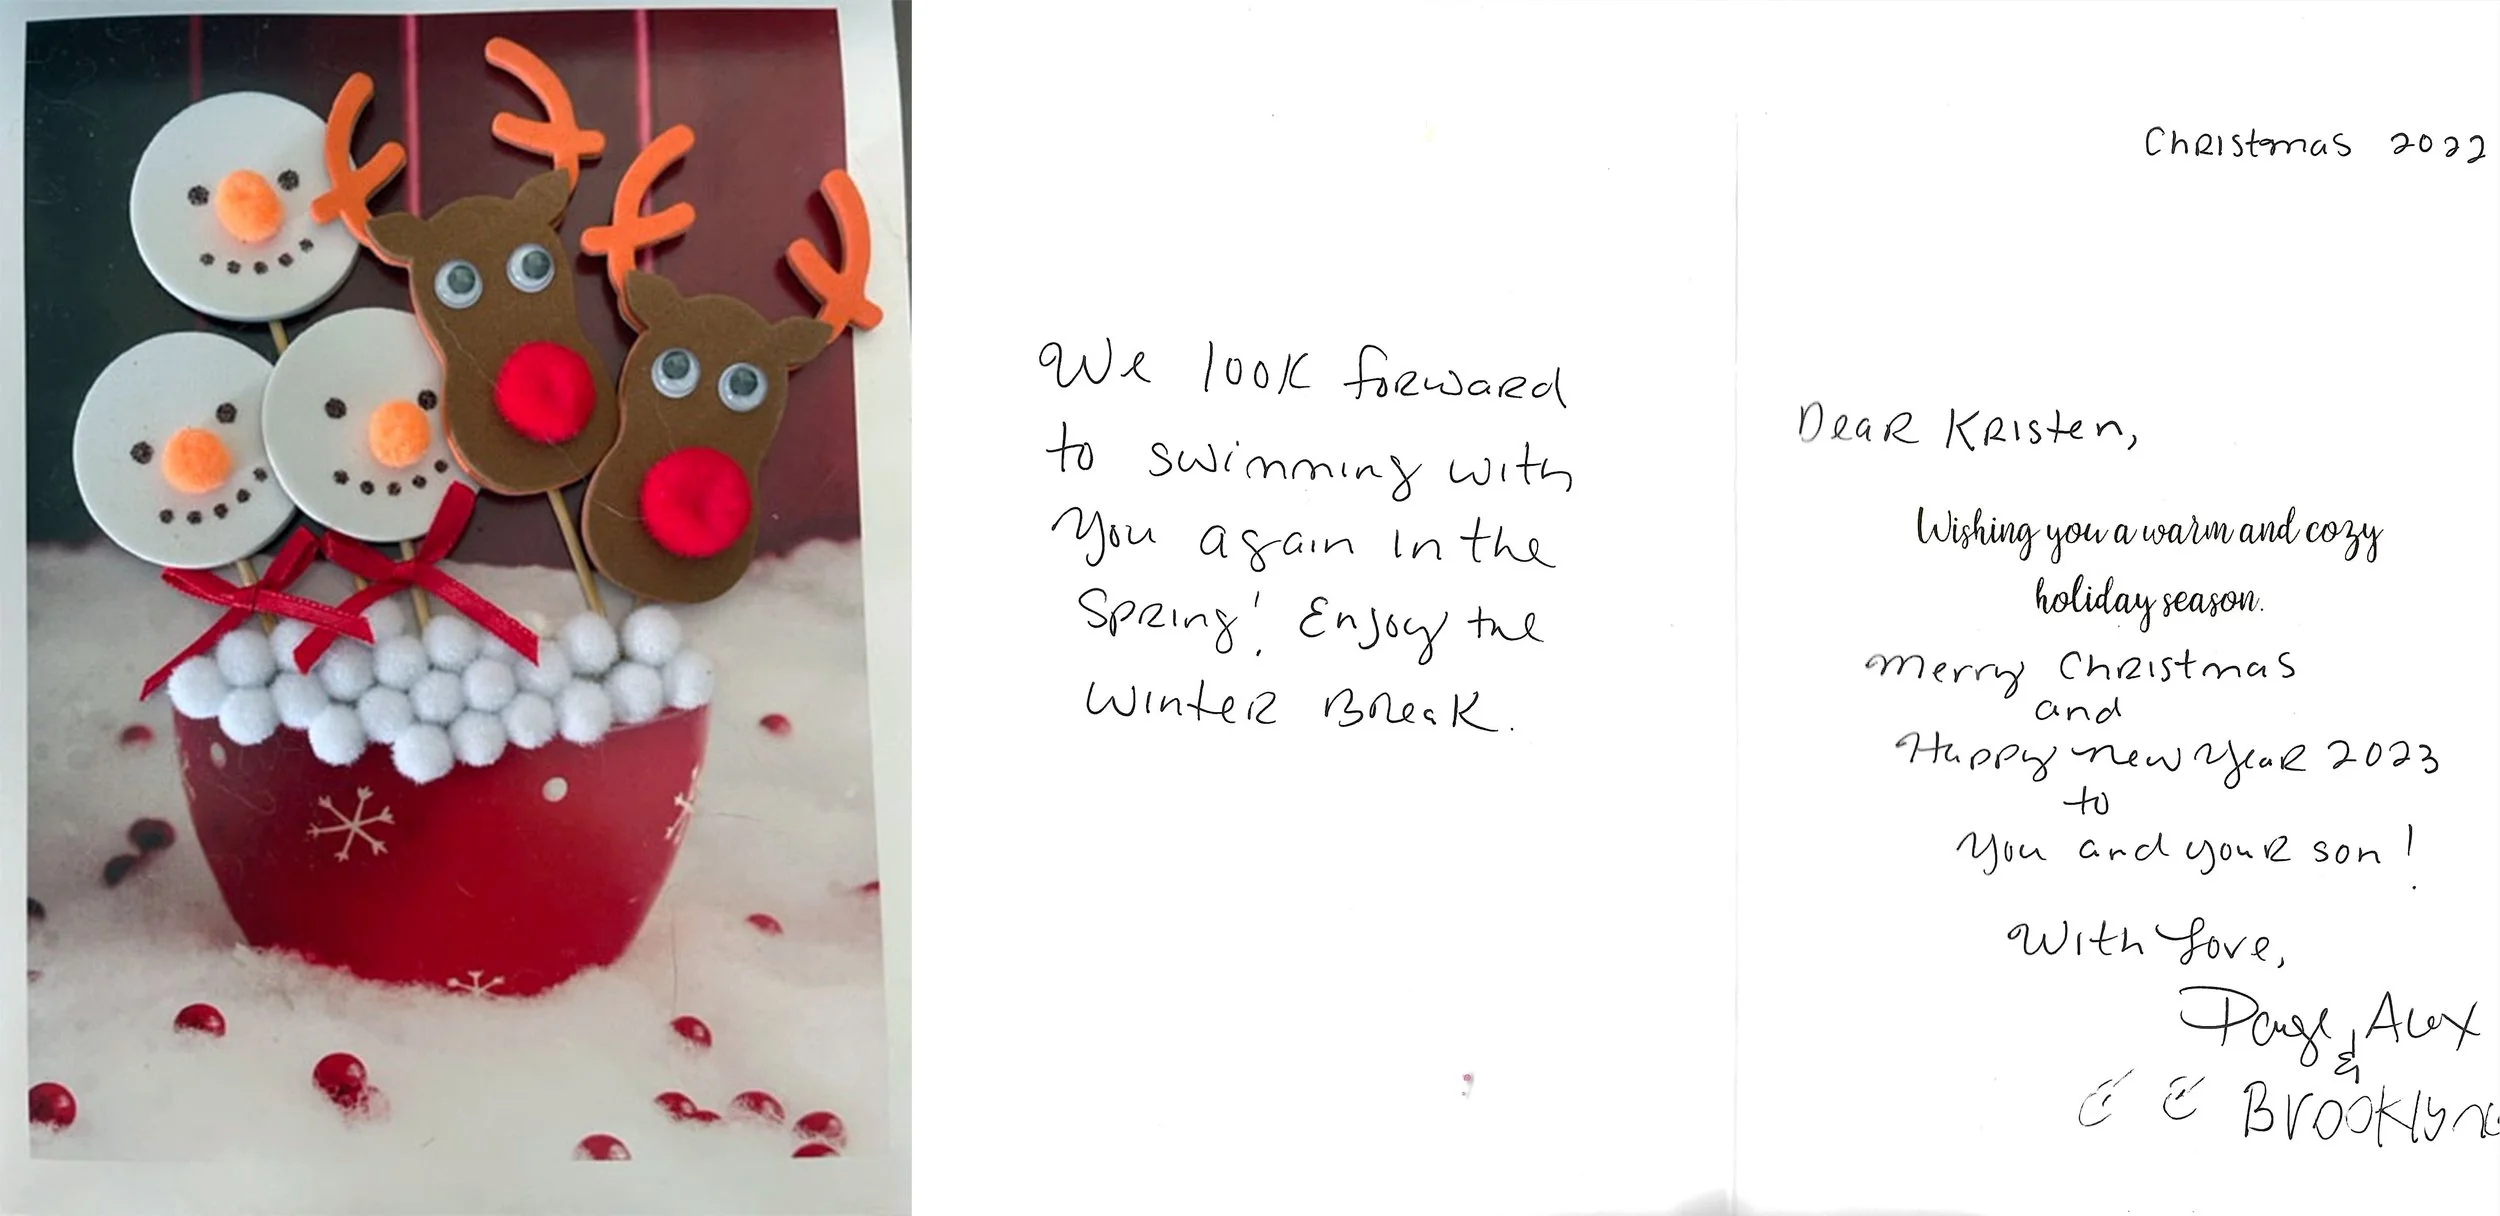 We look forward
to swimming with
you again in the
Spring! Enjoy the
Winter Break.
Christmas 2022
Dear Kristen,
Wishing you a warm and cozy
holiday season.
Merry Christmas
and
Happy New Year 2023
to
You and your son!
With Love,
Paige, Alex
&
Brooklynn